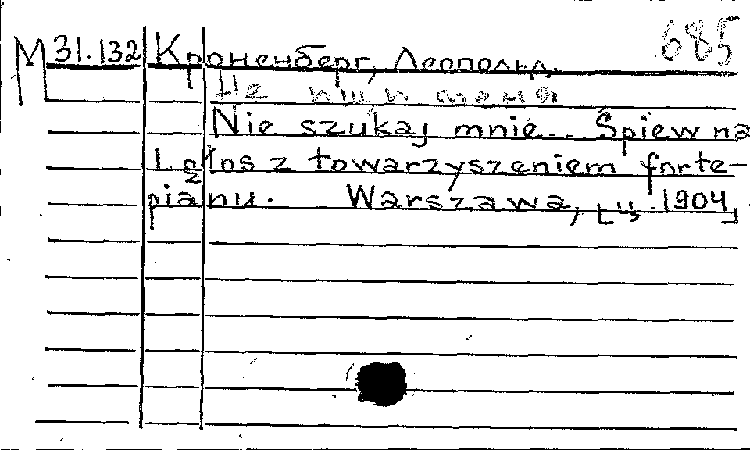 685
М 31.132 Кроненберг, Леопольд.
Не ищи меня
Nie szukaj mnie... Śpiew na
1 głos z towarzyszeniem forte-
pianu. Warszawa, [ц. 1904]